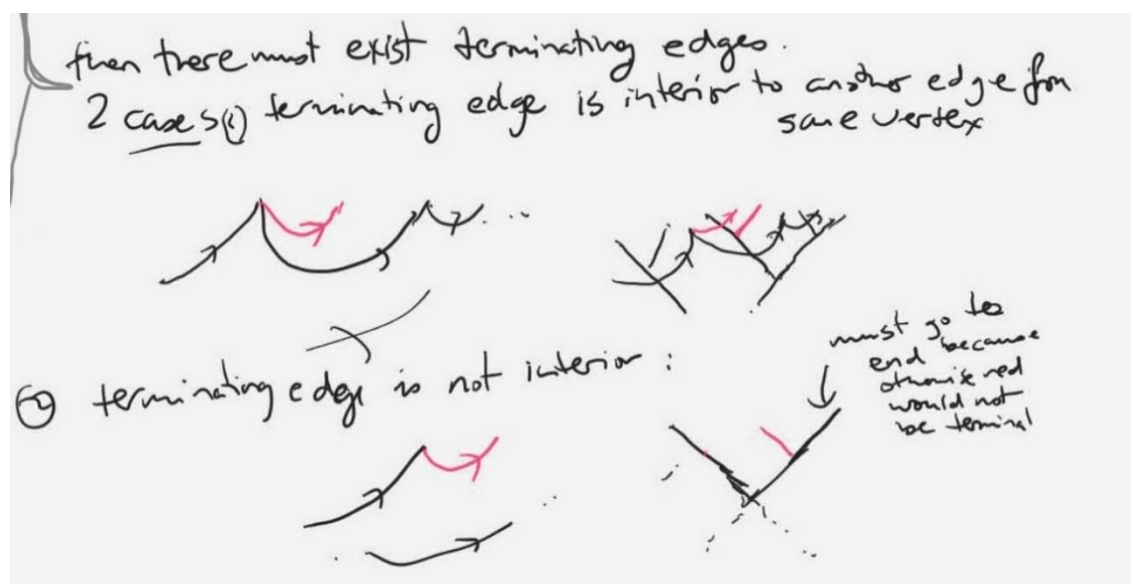 then there must exist terminating edges.
2 cases ① terminating edge is interior to another edge from
same vertex
② terminating edge is not interior :
must go to
end because
otherwise red
would not
be terminal